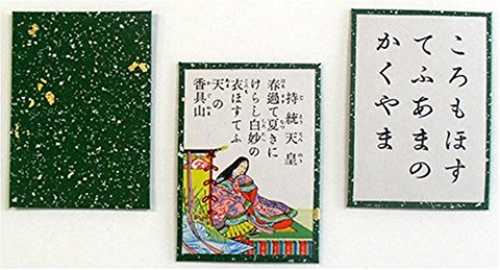 持統天皇
春過て夏きに
けらし白妙の
衣ほすてふ
天の
香具山
ころもほす
てふあまの
かくやま